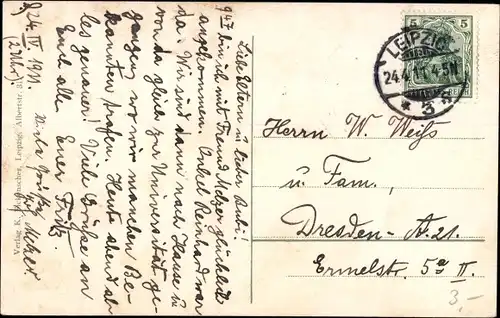 L., 24. IV. 1911.
(2 Uhr)
Liebe Eltern u. lieber Rudi!
9 47 bin ich mit Freund Melzer glücklich
angekommen. Onkel Reinhard war
da. Wir sind dann nach Hause u.
von da gleich zur Universität ge-
gangen, wo wir manchen Be-
kannten trafen. Heute abend al-
les genauer! Viele Grüße an
Euch alle Euer Fritz.
Verlag Leipzig, Albertstr.
5 5
LEIPZIG
24.4.11. 4-5N
* 3
Herrn W. Weiß
u. Fam.,
Dresden-A. 21.
Ermelstr. 5a II.
3.-